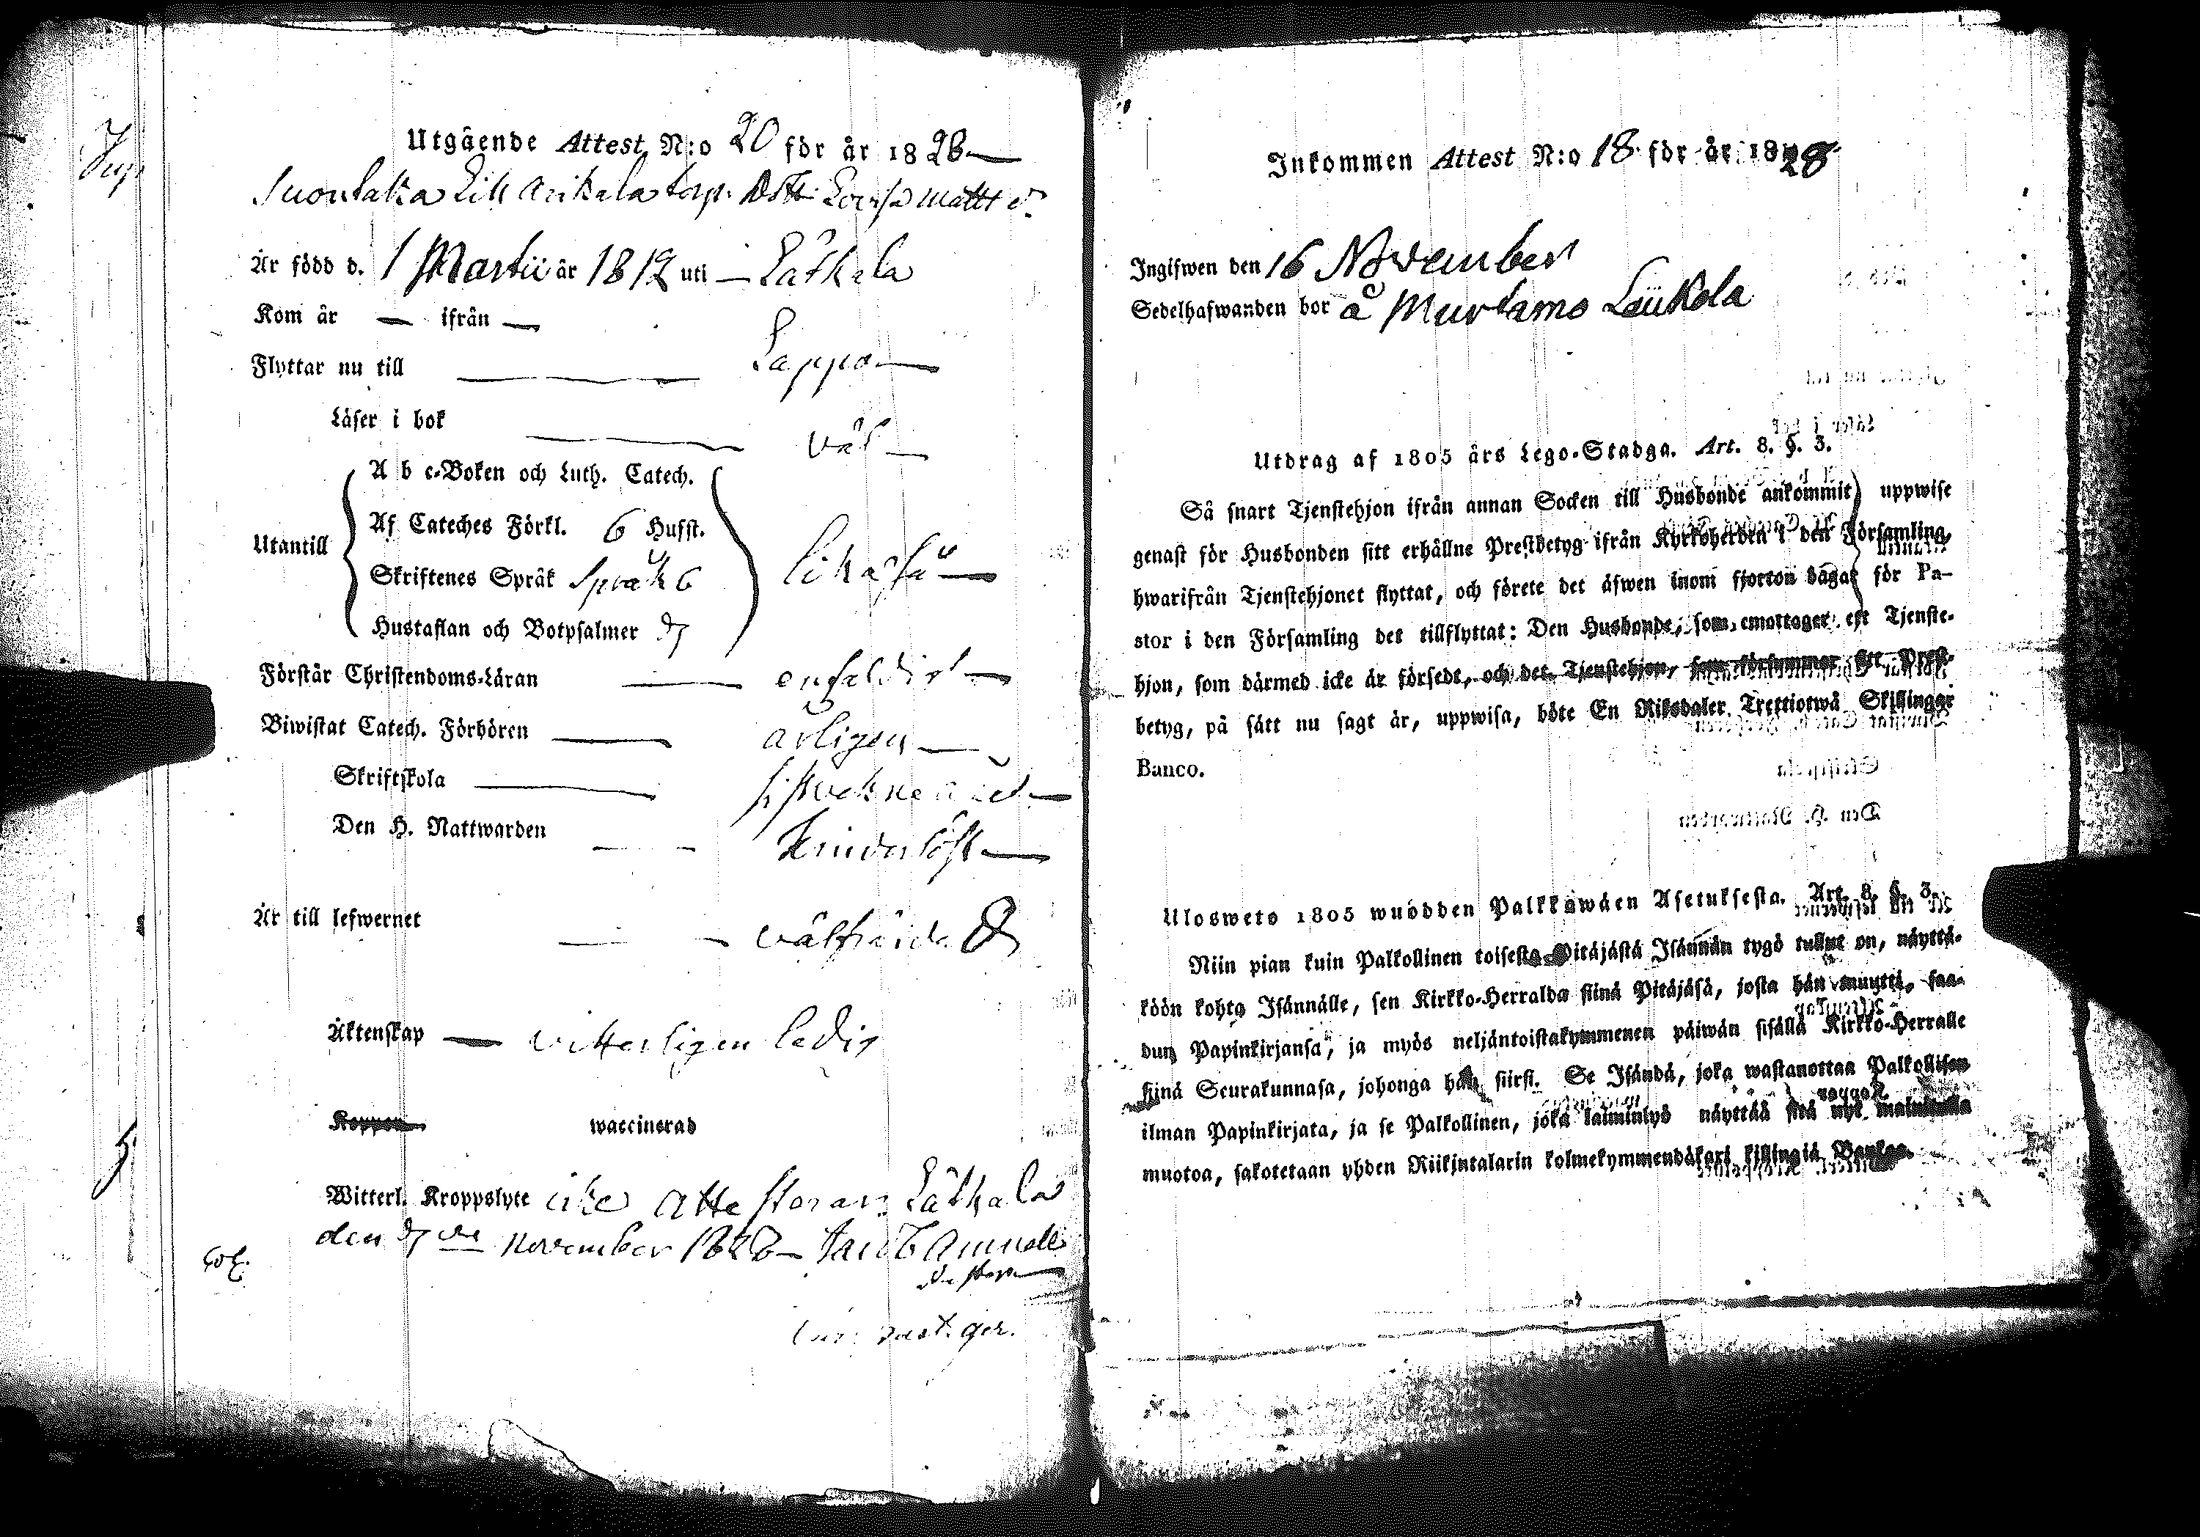 Utgående Attest N:o 20 för år 1828
Suontaka Lill Arikala torp. Dotter Lovisa Matts d:r
Är född d. 1 Martii år 1812 uti Lätkala
Kom år — ifrån —
Flyttar nu till Lappo
Läser i bok väl
Utantill
A b c-Boken och Luth. Catech.
Af Cateches Förkl. 6 Hufst.
Skriftenes Språk Språk 6
Hustaflan och Botpsalmer
likaså
Förstår Christendoms-Läran enfaldigt
Biwistat Catech. Förhören årligen
Skriftskola
Den H. Nattwarden
Är till lefwernet välfräjdad
Äktenskap — vitterligen ledig
Koppor waccinerad
Witterl. Kroppslyte icke Attesteras Lätkala
den November 1828 Jacob Amnell
Pastor
Inkommen Attest N:o 18 för år 1828
Ingifwen den 16 November
Sedelhafwanden bor å Murtamo Leükola
Utdrag af 1805 års Lego-Stadga. Art. 8. §. 3.
Så snart Tjenstehjon ifrån annan Socken till Husbonde ankommit, uppwise
genast för Husbonden sitt erhållne Prestbetyg ifrån Kyrkoherden i den Församling,
hwarifrån Tjenstehjonet flyttat, och förete det äfwen inom fjorton dagar för Pa-
stor i den Församling det tillflyttat: Den Husbonde, som emottager ett Tjenste-
hjon, som därmed icke är försedt, och det Tjenstehjon, som försummar sitt Prest-
betyg, på sätt nu sagt är, uppwisa, böte En Riksdaler Trettiotwå Skillingar
Banco.
Ulosweto 1805 wuodden Palkkawäen Asetuksesta. Art. 8. §. 3.
Niin pian kuin Palkollinen toisesta Pitäjästä Isännän tygö tullut on, näyttä-
köön kohta Isännälle, sen Kirkko-Herralda siinä Pitäjäsä, josta hän muutti, saa-
dun Papinkirjansa, ja myös neljäntoistakymmenen päiwän sisällä Kirkko-Herralle
siinä Seurakunnasa, johonga hän siirsi. Se Isändä, joka wastanottaa Palkollisen
ilman Papinkirjata, ja se Palkollinen, joka laiminlyö näyttää sitä nyt mainitulla
muotoa, sakotetaan yhden Riikintalarin kolmekymmendäkaxi killingiä Bankos.